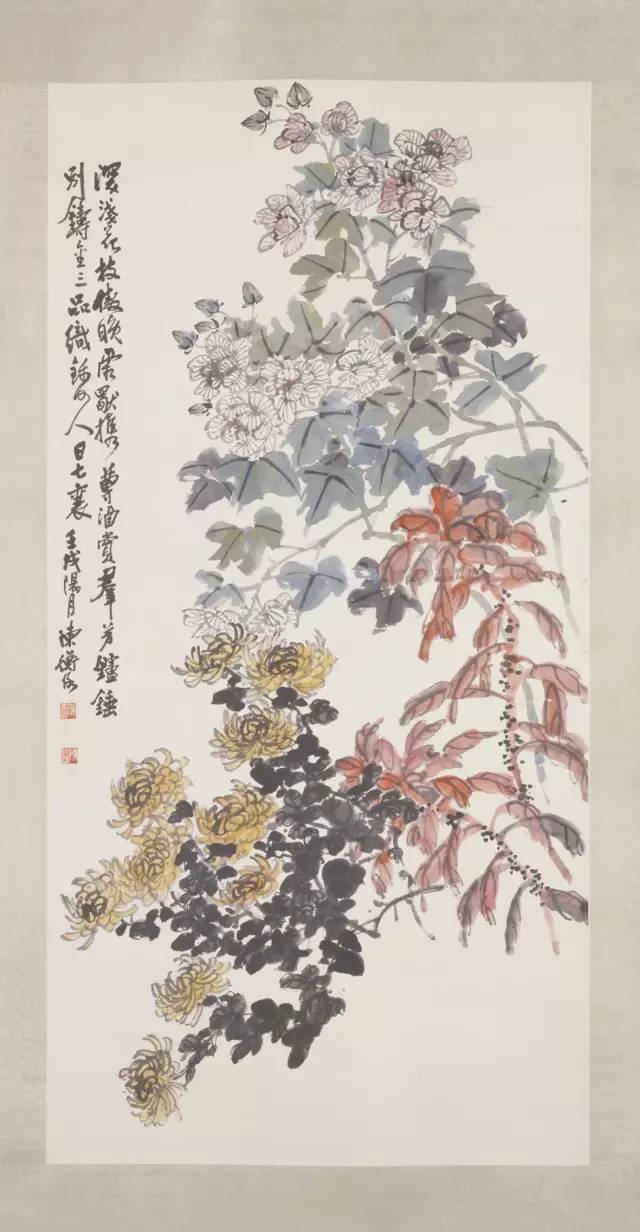 深淺花枝傲晚霜攜尊酒賞羣芳鑪錘
別鑄金三品織錦何人日七襄 壬戌陽月陳衡恪